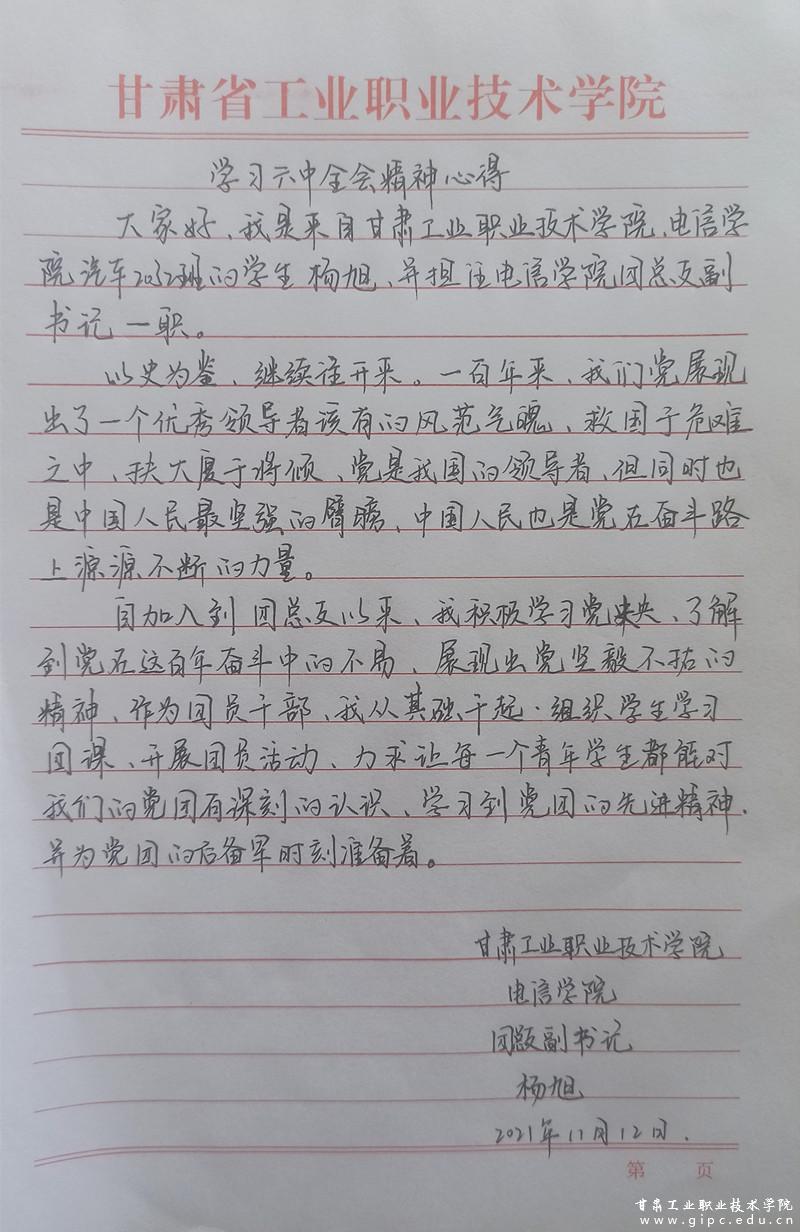 甘肃省工业职业技术学院
学习六中全会精神心得
大家好、我是来自甘肃工业职业技术学院、电信学
院汽车2032班的学生杨旭、并担任电信学院团总支副
书记一职。
以史为鉴、继续往开来。一百年来、我们党展现
出了一个优秀领导者该有的风范气魄、救国于危难
之中、扶大厦于将倾、党是我国的领导者、但同时也
是中国人民最坚强的臂膀、中国人民也是党在奋斗路
上源源不断的力量。
自加入到团总支以来、我积极学习党史、了解
到党在这百年奋斗中的不易、展现出党坚毅不拔的
精神、作为团员干部、我从其础干起.组织学生学习
团课、开展团员活动、力求让每一个青年学生都能对
我们的党团有深刻的认识、学习到党团的先进精神.
并为党团的后备军时刻准备着。
甘肃工业职业技术学院
电信学院
团总支副书记
杨旭
2021年11月12日.
第 页
甘肃工业职业技术学院
www.gipc.edu.cn